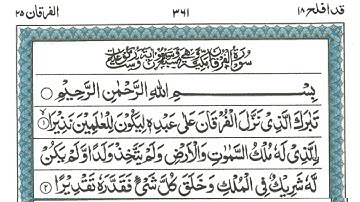 قد افلح ۱۸ ۳۶۱ الفرقان ۲۵
سورة الفرقان مكية وهى سبع وسبعون اية وست ركوعات
بِسْمِ اللهِ الرَّحْمٰنِ الرَّحِيْمِ ○
تَبٰرَكَ الَّذِىْ نَزَّلَ الْفُرْقَانَ عَلٰى عَبْدِهٖ لِيَكُوْنَ لِلْعٰلَمِيْنَ نَذِيْرًا ۙ﴿۱﴾
ۨالَّذِىْ لَهٗ مُلْكُ السَّمٰوٰتِ وَالْاَرْضِ وَلَمْ يَتَّخِذْ وَلَدًا وَّلَمْ يَكُنْ
لَّهٗ شَرِيْكٌ فِى الْمُلْكِ وَخَلَقَ كُلَّ شَىْءٍ فَقَدَّرَهٗ تَقْدِيْرًا ﴿۲﴾